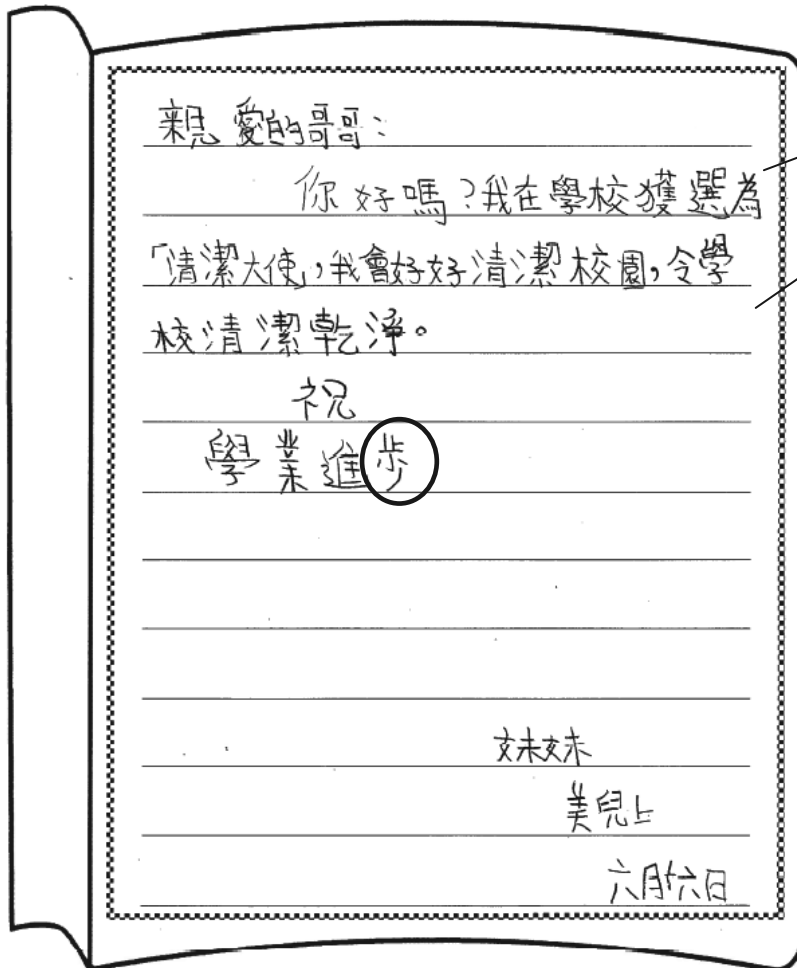 親愛的哥哥：
你好嗎？我在學校獲選為
「清潔大使」，我會好好清潔校園，令學
校清潔乾淨。
祝
學業進步
妹妹
美兒上
六月十六日